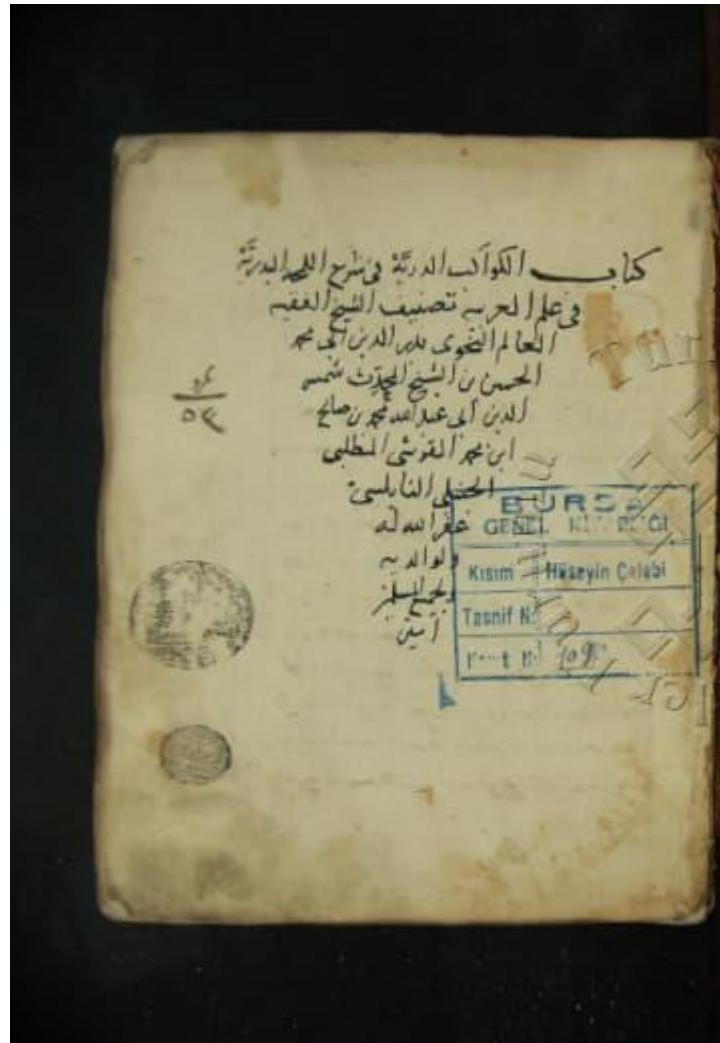 كتاب الكواكب الدرية في شرح اللمحة البدرية
في علم العربية تصنيف الشيخ الفقيه
العالم النحوي بدر الدين ابي محمد
الحسن بن الشيخ المحدث شمس
الدين ابي عبد الله محمد بن صالح
ابن محمد القرشي المطلبي
الحنبلي النابلسي
غفر الله له
ولوالديه
ولجميع المسلمين
امين
BURSA
GENEL
Kısım Hüseyin Çelebi
Tasnif N: